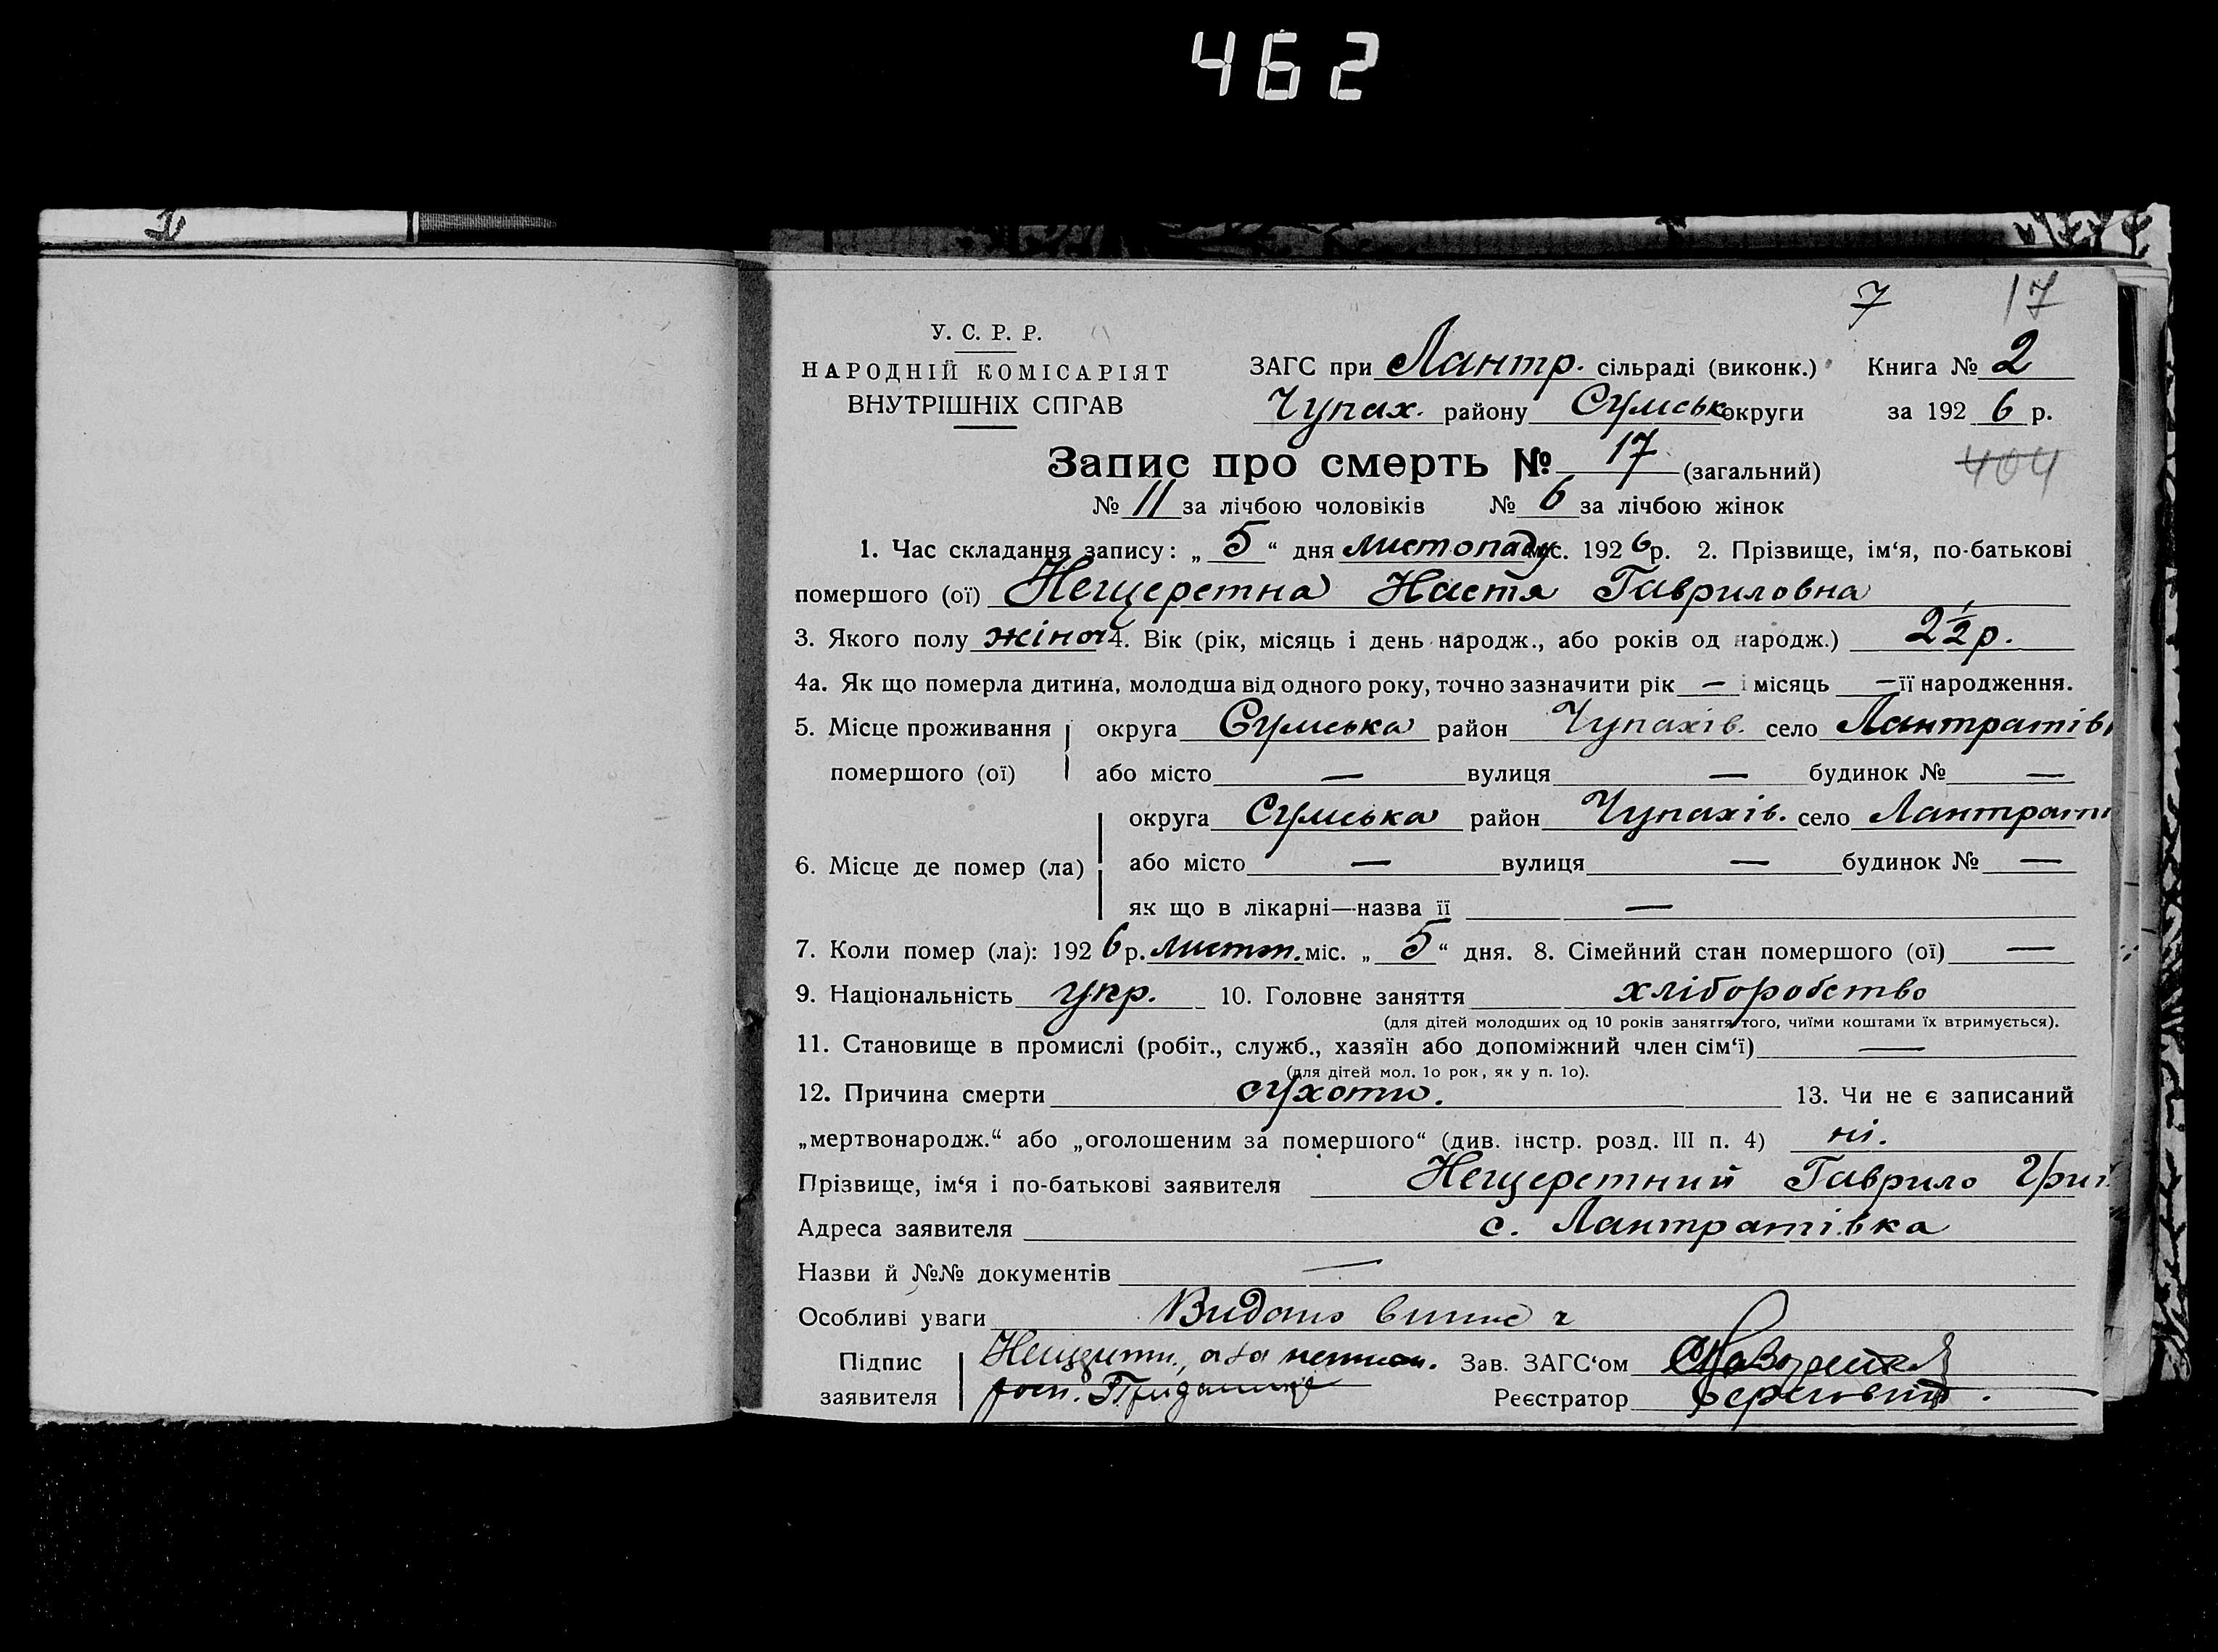 462
7 17
У. С. Р. Р.
НАРОДНІЙ КОМІСАРІЯТ
ВНУТРІШНІХ СПРАВ
ЗАГС при Лантр. сільраді (виконк.) Книга № 2
Чупах. району Сумськ округи за 192 6 р.
Запис про смерть № 17 (загальний)
404
№ 11 за лічбою чоловіків № 6 за лічбою жінок
1. Час складання запису: „ 5 “ дня листопаду міс. 192 6 р. 2. Прізвище, ім‘я, по-батькові
помершого (ої) Нещеретна Настя Гавриловна
3. Якого полу жіноч 4. Вік (рік, місяць і день народж., або років од народж.) 2½ р.
4а. Як що померла дитина, молодша від одного року, точно зазначити рік — і місяць — її народження.
5. Місце проживання округа Сумська район Чупахів. село Лантратів
помершого (ої) або місто — вулиця — будинок № —
округа Сумська район Чупахів. село Лантрат
6. Місце де помер (ла) або місто — вулиця — будинок № —
як що в лікарні—назва її —
7. Коли помер (ла): 192 6 р. листп. міс. „ 5 “ дня. 8. Сімейний стан помершого (ої) —
9. Національність укр. 10. Головне заняття хліборобство
(для дітей молодших од 10 років заняття того, чиїми коштами їх втримується).
11. Становище в промислі (робіт., служб., хазяїн або допоміжний член сім‘ї) —
(для дітей мол. 1о рок, як у п. 1о).
12. Причина смерти сухоти. 13. Чи не є записаний
„мертвонародж.“ або „оголошеним за помершого“ (див. інстр. розд. III п. 4) ні.
Прізвище, ім‘я і по-батькові заявителя Нещеретний Гаврило Гри
Адреса заявителя с. Лантратівка
Назви й №№ документів —
Особливі уваги Видано
Підпис Зав. ЗАГС‘ом
заявителя Реєстратор